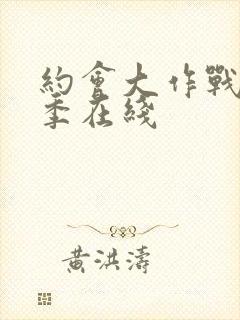 約會大作戰
季在綫
黃洪濤